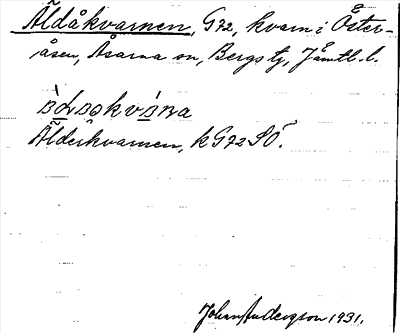 Äldåkvarnen, G72, kvarn i Öster-
åsen, Åsarna sn, Bergs tg, Jämtl. l.
Älderkvarnen, k G72 SÖ.
Johan Anderzson 1931.